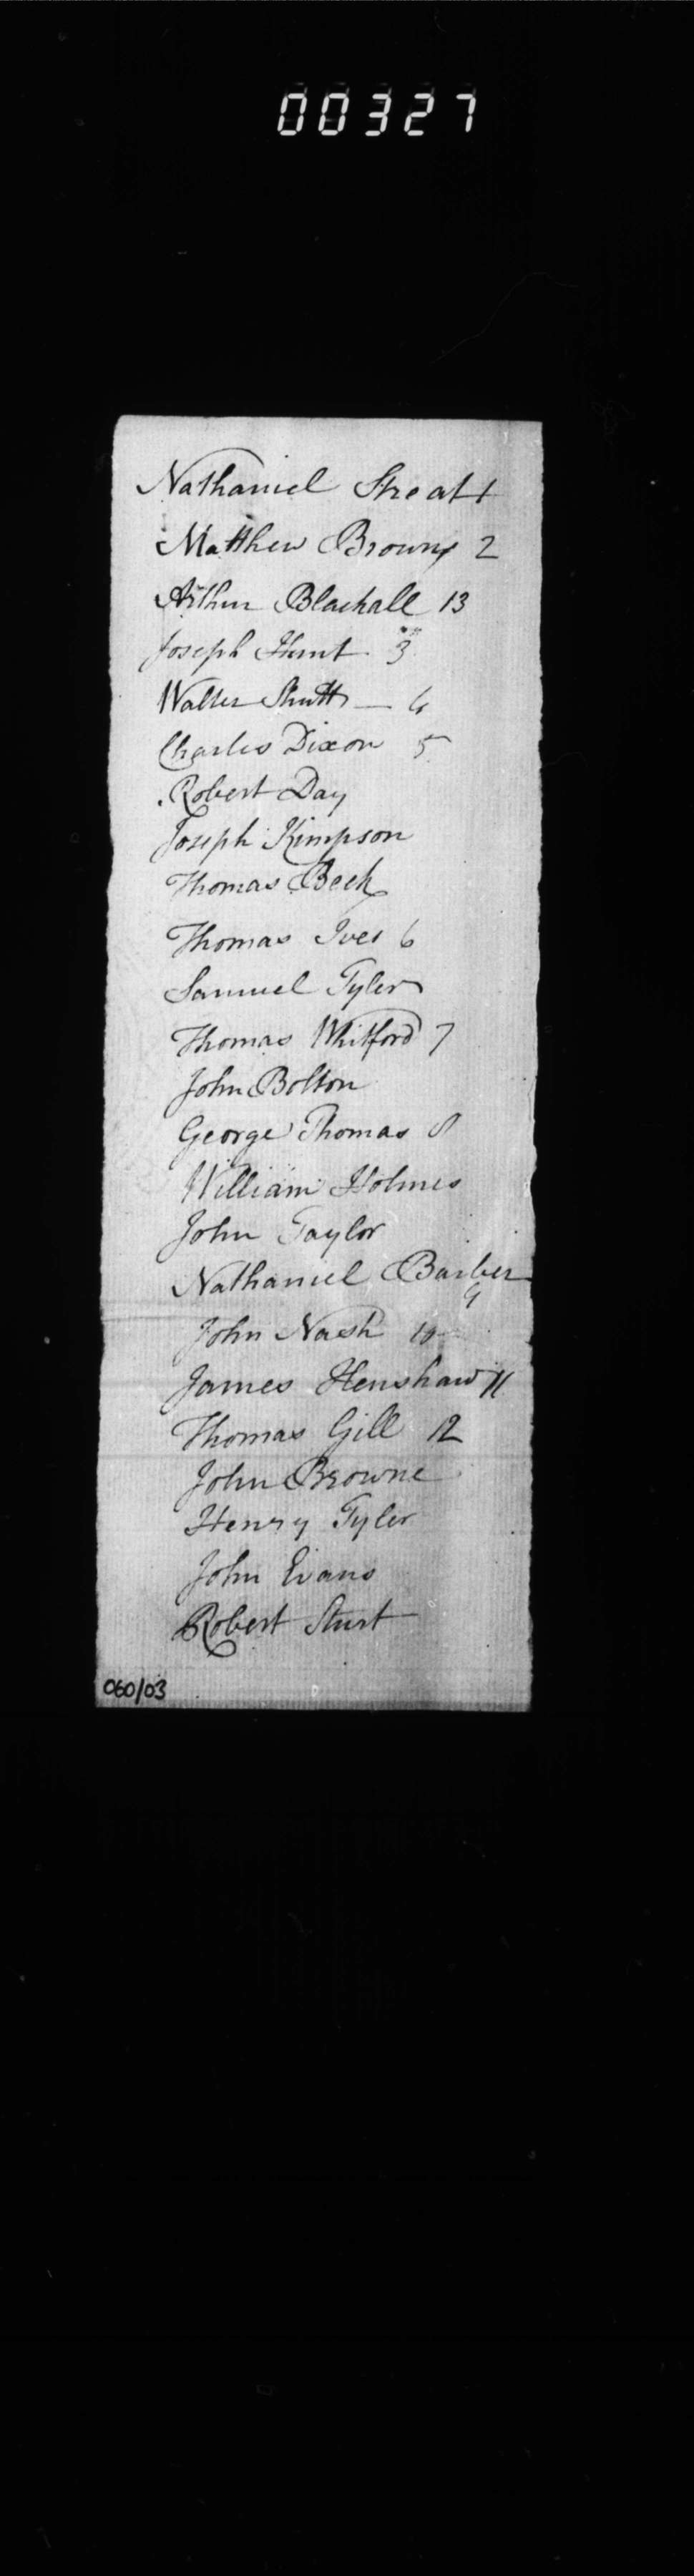 00327
Nathaniel Streat 1
Matthew Browne 2
Arthur Blackall 13
Joseph Hunt 3
Walter Shutt — 4
Charles Dixon 5
Robert Day
Joseph Kimpson
Thomas Beck
Thomas Ives 6
Samuel Tyler
Thomas Whitford 7
John Bolton
George Thomas 8
William Holmes
John Taylor
Nathaniel Barber
9
John Nash 10
James Henshaw 11
Thomas Gill 12
John Browne
Henry Tyler
John Evans
Robert Sturt
060/03